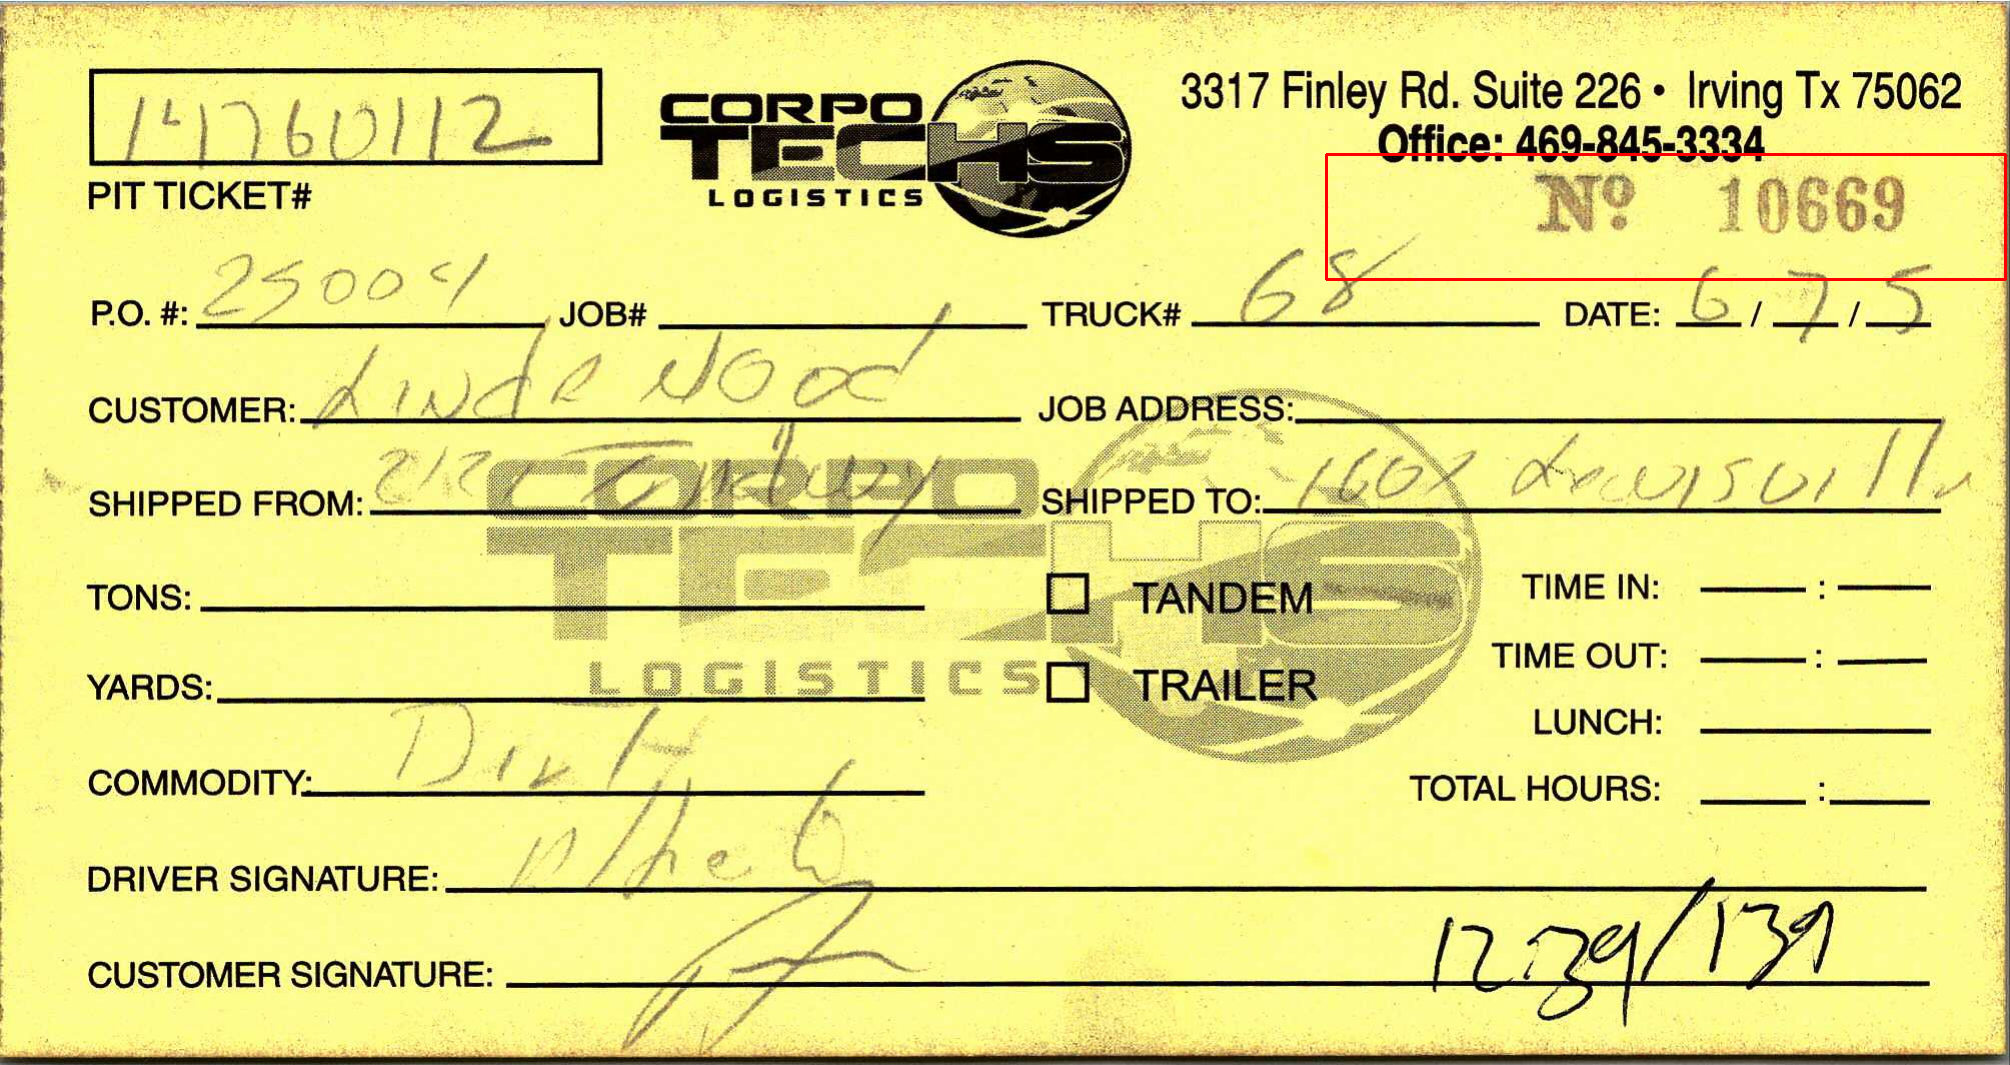 14760112
PIT TICKET#
CORPO
TECHS
LOGISTICS
3317 Finley Rd. Suite 226 • Irving Tx 75062
Office: 469-845-3334
Nº 10669
P.O. #: 25004 JOB# TRUCK# 68 DATE: 6 / 7 / 5
CUSTOMER: JOB ADDRESS:
SHIPPED FROM: SHIPPED TO: Lewisville
CORPO
TECHS
LOGISTICS
TONS: TANDEM TIME IN: :
YARDS: TRAILER TIME OUT: :
LUNCH:
COMMODITY: Dirt TOTAL HOURS: :
DRIVER SIGNATURE:
CUSTOMER SIGNATURE: 12:39/139